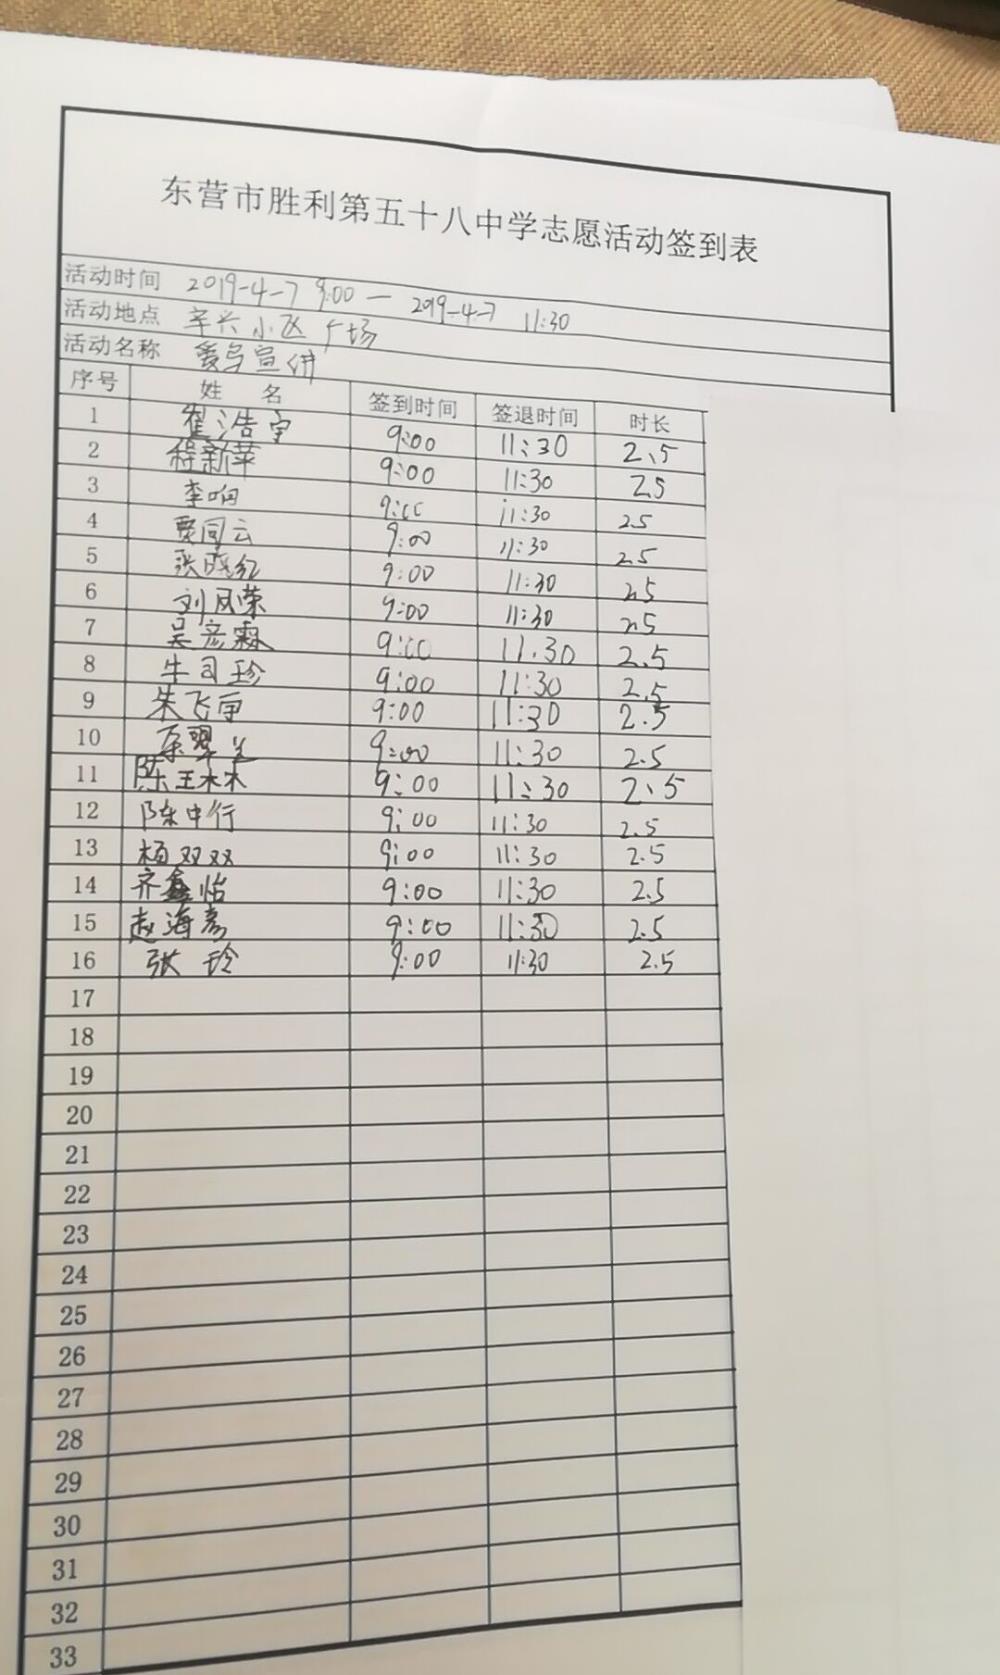 东营市胜利第五十八中学志愿活动签到表
活动时间 2019-4-7 9:00 — 2019-4-7 11:30
活动地点 辛兴小区广场
活动名称 爱鸟宣讲
序号 姓 名 签到时间 签退时间 时长
1 崔浩宇 9:00 11:30 2.5
2 程新苹 9:00 11:30 2.5
3 李响 9:00 11:30 2.5
4 贾同云 9:00 11:30 2.5
5 张晓红 9:00 11:30 2.5
6 刘凤荣 9:00 11:30 2.5
7 吴彦霖 9:00 11:30 2.5
8 牛司珍 9:00 11:30 2.5
9 朱飞 9:00 11:30 2.5
10 9:00 11:30 2.5
11 陈王木木 9:00 11:30 2.5
12 陈中行 9:00 11:30 2.5
13 杨双双 9:00 11:30 2.5
14 齐鑫怡 9:00 11:30 2.5
15 赵海彦 9:00 11:30 2.5
16 张玲 9:00 11:30 2.5
17
18
19
20
21
22
23
24
25
26
27
28
29
30
31
32
33